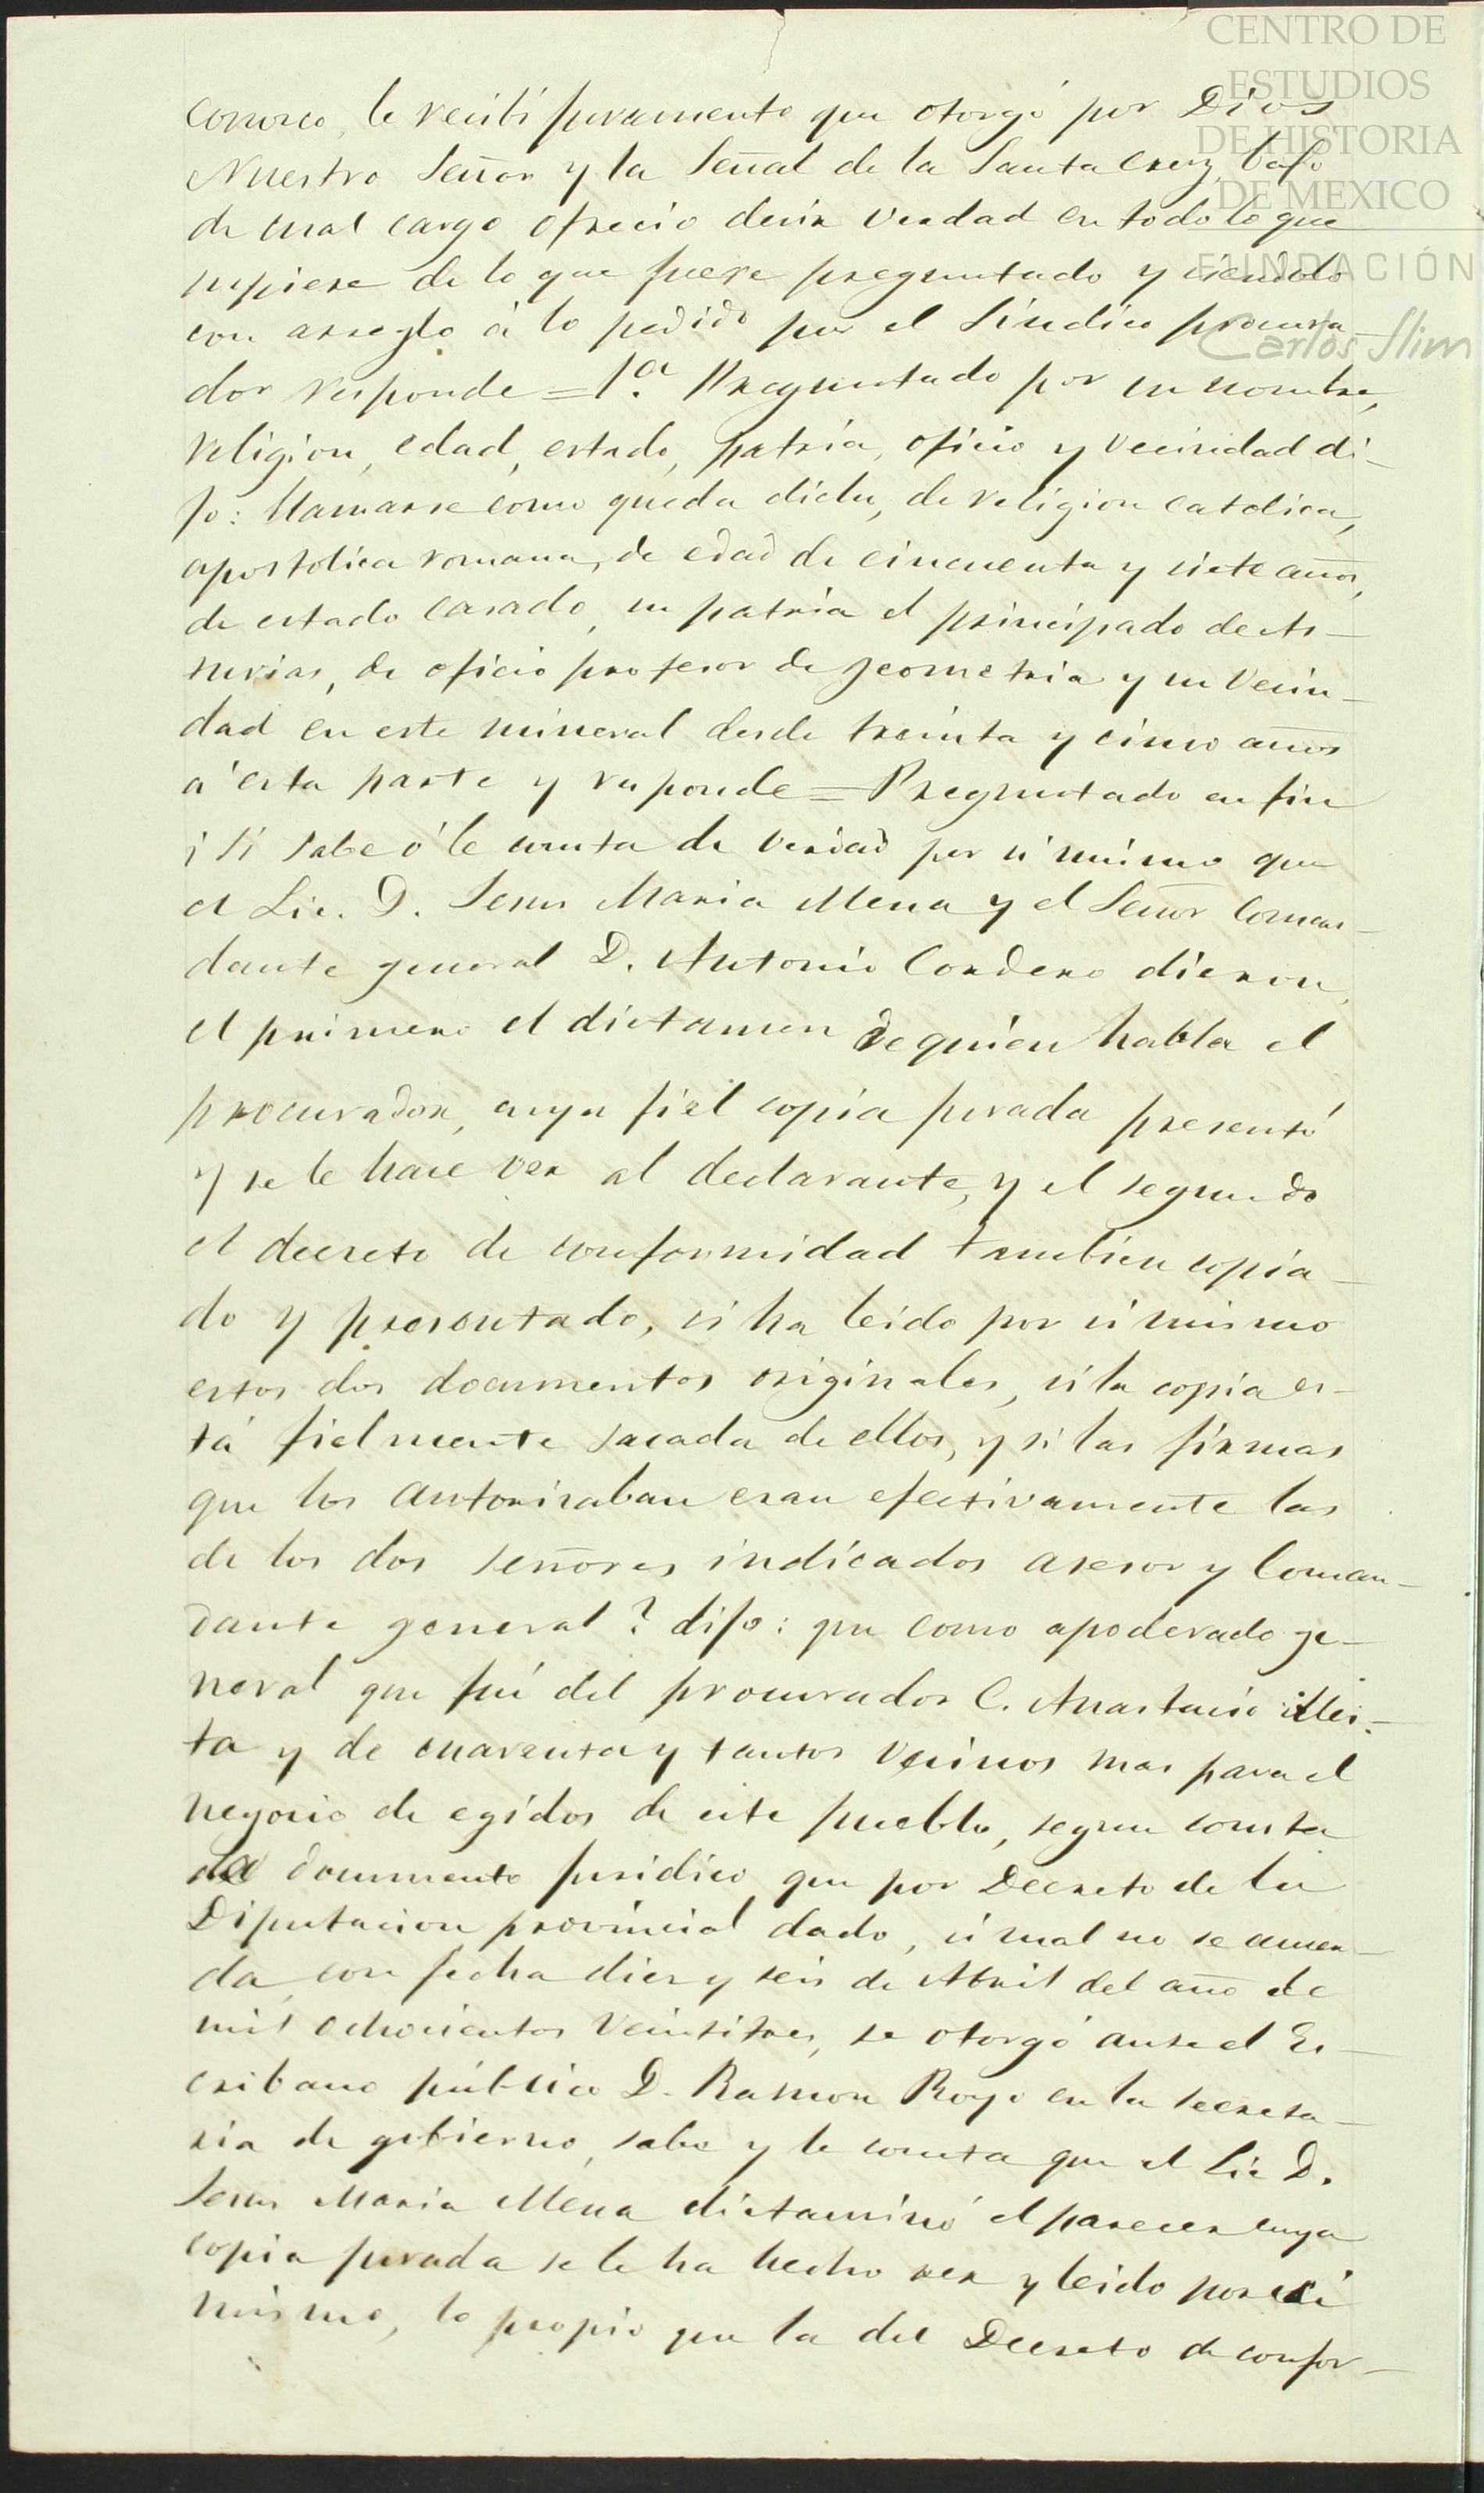 CENTRO DE
ESTUDIOS
DE HISTORIA
DE MEXICO
FUNDACIÓN
Carlos Slim
conosco, le recibí juramento que otorgó por Dios
Nuestro Señor y la Señal de la Santa Cruz, bajo
de cual cargo ofrecio decir verdad en todo lo que
supiese de lo que fuere preguntado y siendolo
con arreglo á lo pedido por el Síndico procura-
dor responde = 1.a Preguntado por su nombre,
religion, edad, estado, patria, oficio y vecindad di-
jo: llamarse como queda dicho, de religion catolica,
apostolica romana, de edad de cincuenta y siete años,
de estado casado, su patria el principado de As-
turias, de oficio profesor de geometria y su vecin-
dad en este mineral desde treinta y cinco años
á esta parte y responde = Preguntado en fin
¿ Si sabe ó le consta de verdad por si mismo que
el Lic. D. Jesus Maria Mena y el Señor Coman-
dante general D. Antonio Cordero dieron,
el primero el dictamen de quien habla el
procurador, cuya fiel copia jurada presentó
y se le hace ver al declarante, y el segundo
el decreto de conformidad tambien copia-
do y presentado, si ha leido por si mismo
estos dos documentos originales, si la copia es-
tá fielmente sacada de ellos, y si las firmas
que los autorisaban eran efectivamente las
de los dos señores indicados asesor y Coman-
dante general ? dijo: que como apoderado ge-
neral que fuí del procurador C. Anastacio
ta y de cuarenta y tantos vecinos mas para el
negocio de egidos de este pueblo, segun consta
del documento juridico que por Decreto de la
Diputacion provincial dado, si mal no se acuer-
da, con fecha diez y seis de Abril del año de
mil ochocientos veintitres, se otorgó ante el Es-
cribano público D. Ramon Royo en la secreta-
ria de gobierno, sabe y le consta que el Lic D.
Jesus Maria Mena dictaminó el parecer cuya
copia jurada se le ha hecho ver y leido por sí
mismo, lo propio que la del Decreto de confor-